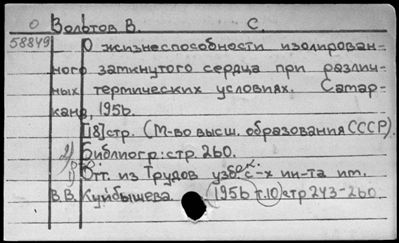 О Вольтов В. С.
58849 О жизнеспособности изолирован-
ного заткнутого сердца при различ-
ных термических условиях. Самар-
канд, 1956.
[18]стр. (М-во высш. образования СССР).
2) Библиогр: стр. 260.
1) Отт. из Трудов узбек. с-х ин-та им.
В.В. Куйбышева 1956 т.10 стр 243-260.